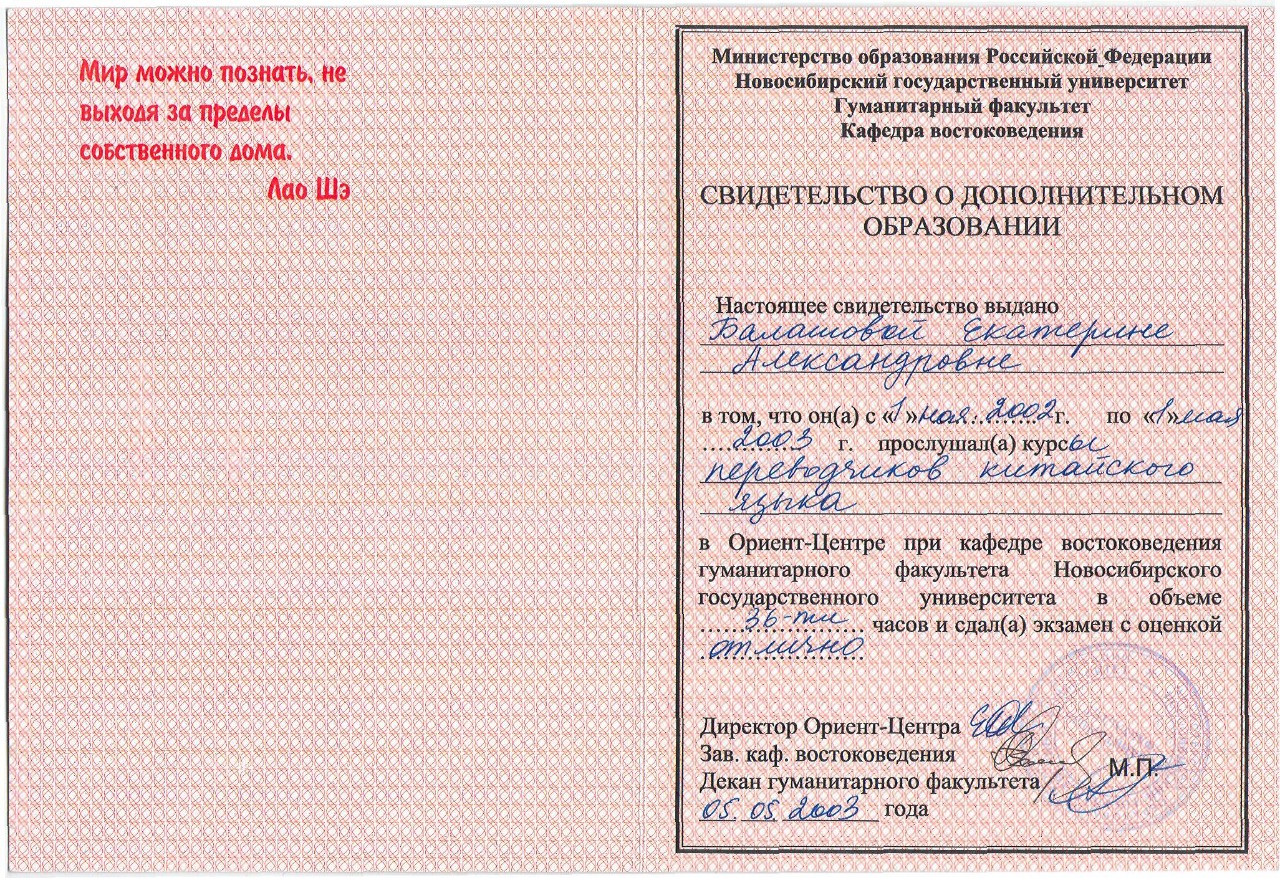 Мир можно познать, не
выходя за пределы
собственного дома.
Лао Шэ
Министерство образования Российской Федерации
Новосибирский государственный университет
Гуманитарный факультет
Кафедра востоковедения
СВИДЕТЕЛЬСТВО О ДОПОЛНИТЕЛЬНОМ
ОБРАЗОВАНИИ
Настоящее свидетельство выдано
Балашовой Екатерине
Александровне
в том, что он(а) с «1»мая 2002 г. по «1»мая
2003 г. прослушал(а) курсы
переводчиков китайского
языка
в Ориент-Центре при кафедре востоковедения
гуманитарного факультета Новосибирского
государственного университета в объеме
36-ти часов и сдал(а) экзамен с оценкой
отлично
Директор Ориент-Центра
Зав. каф. востоковедения
М.П.
Декан гуманитарного факультета
05. 05. 2003 года